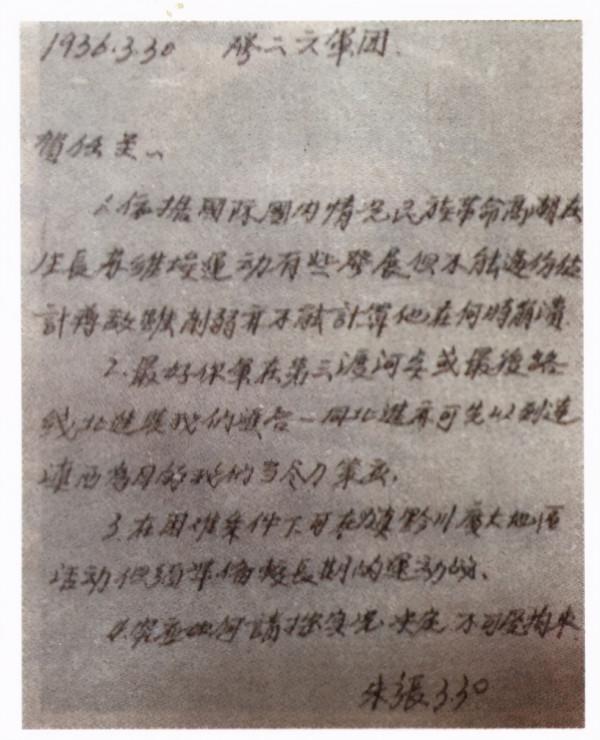 1936.3.30 膠二六軍团.
賀任关、
1.依據國际國内情况民族革命高潮在
生長苏維埃運动有些發展但不能過份估
計蒋敵雖削弱亦不能計算他在何時崩潰.
2.最好你軍在第三渡河点或最後路
线北進與我们匯合一同北進亦可先以到達
滇西為目的我们当尽力策应.
3.在困难条件下可在滇黔川廣大地區
活动但須準備較長期的運动战、
4.究竟如何請按实况决定不可受拘束
朱張 3.30